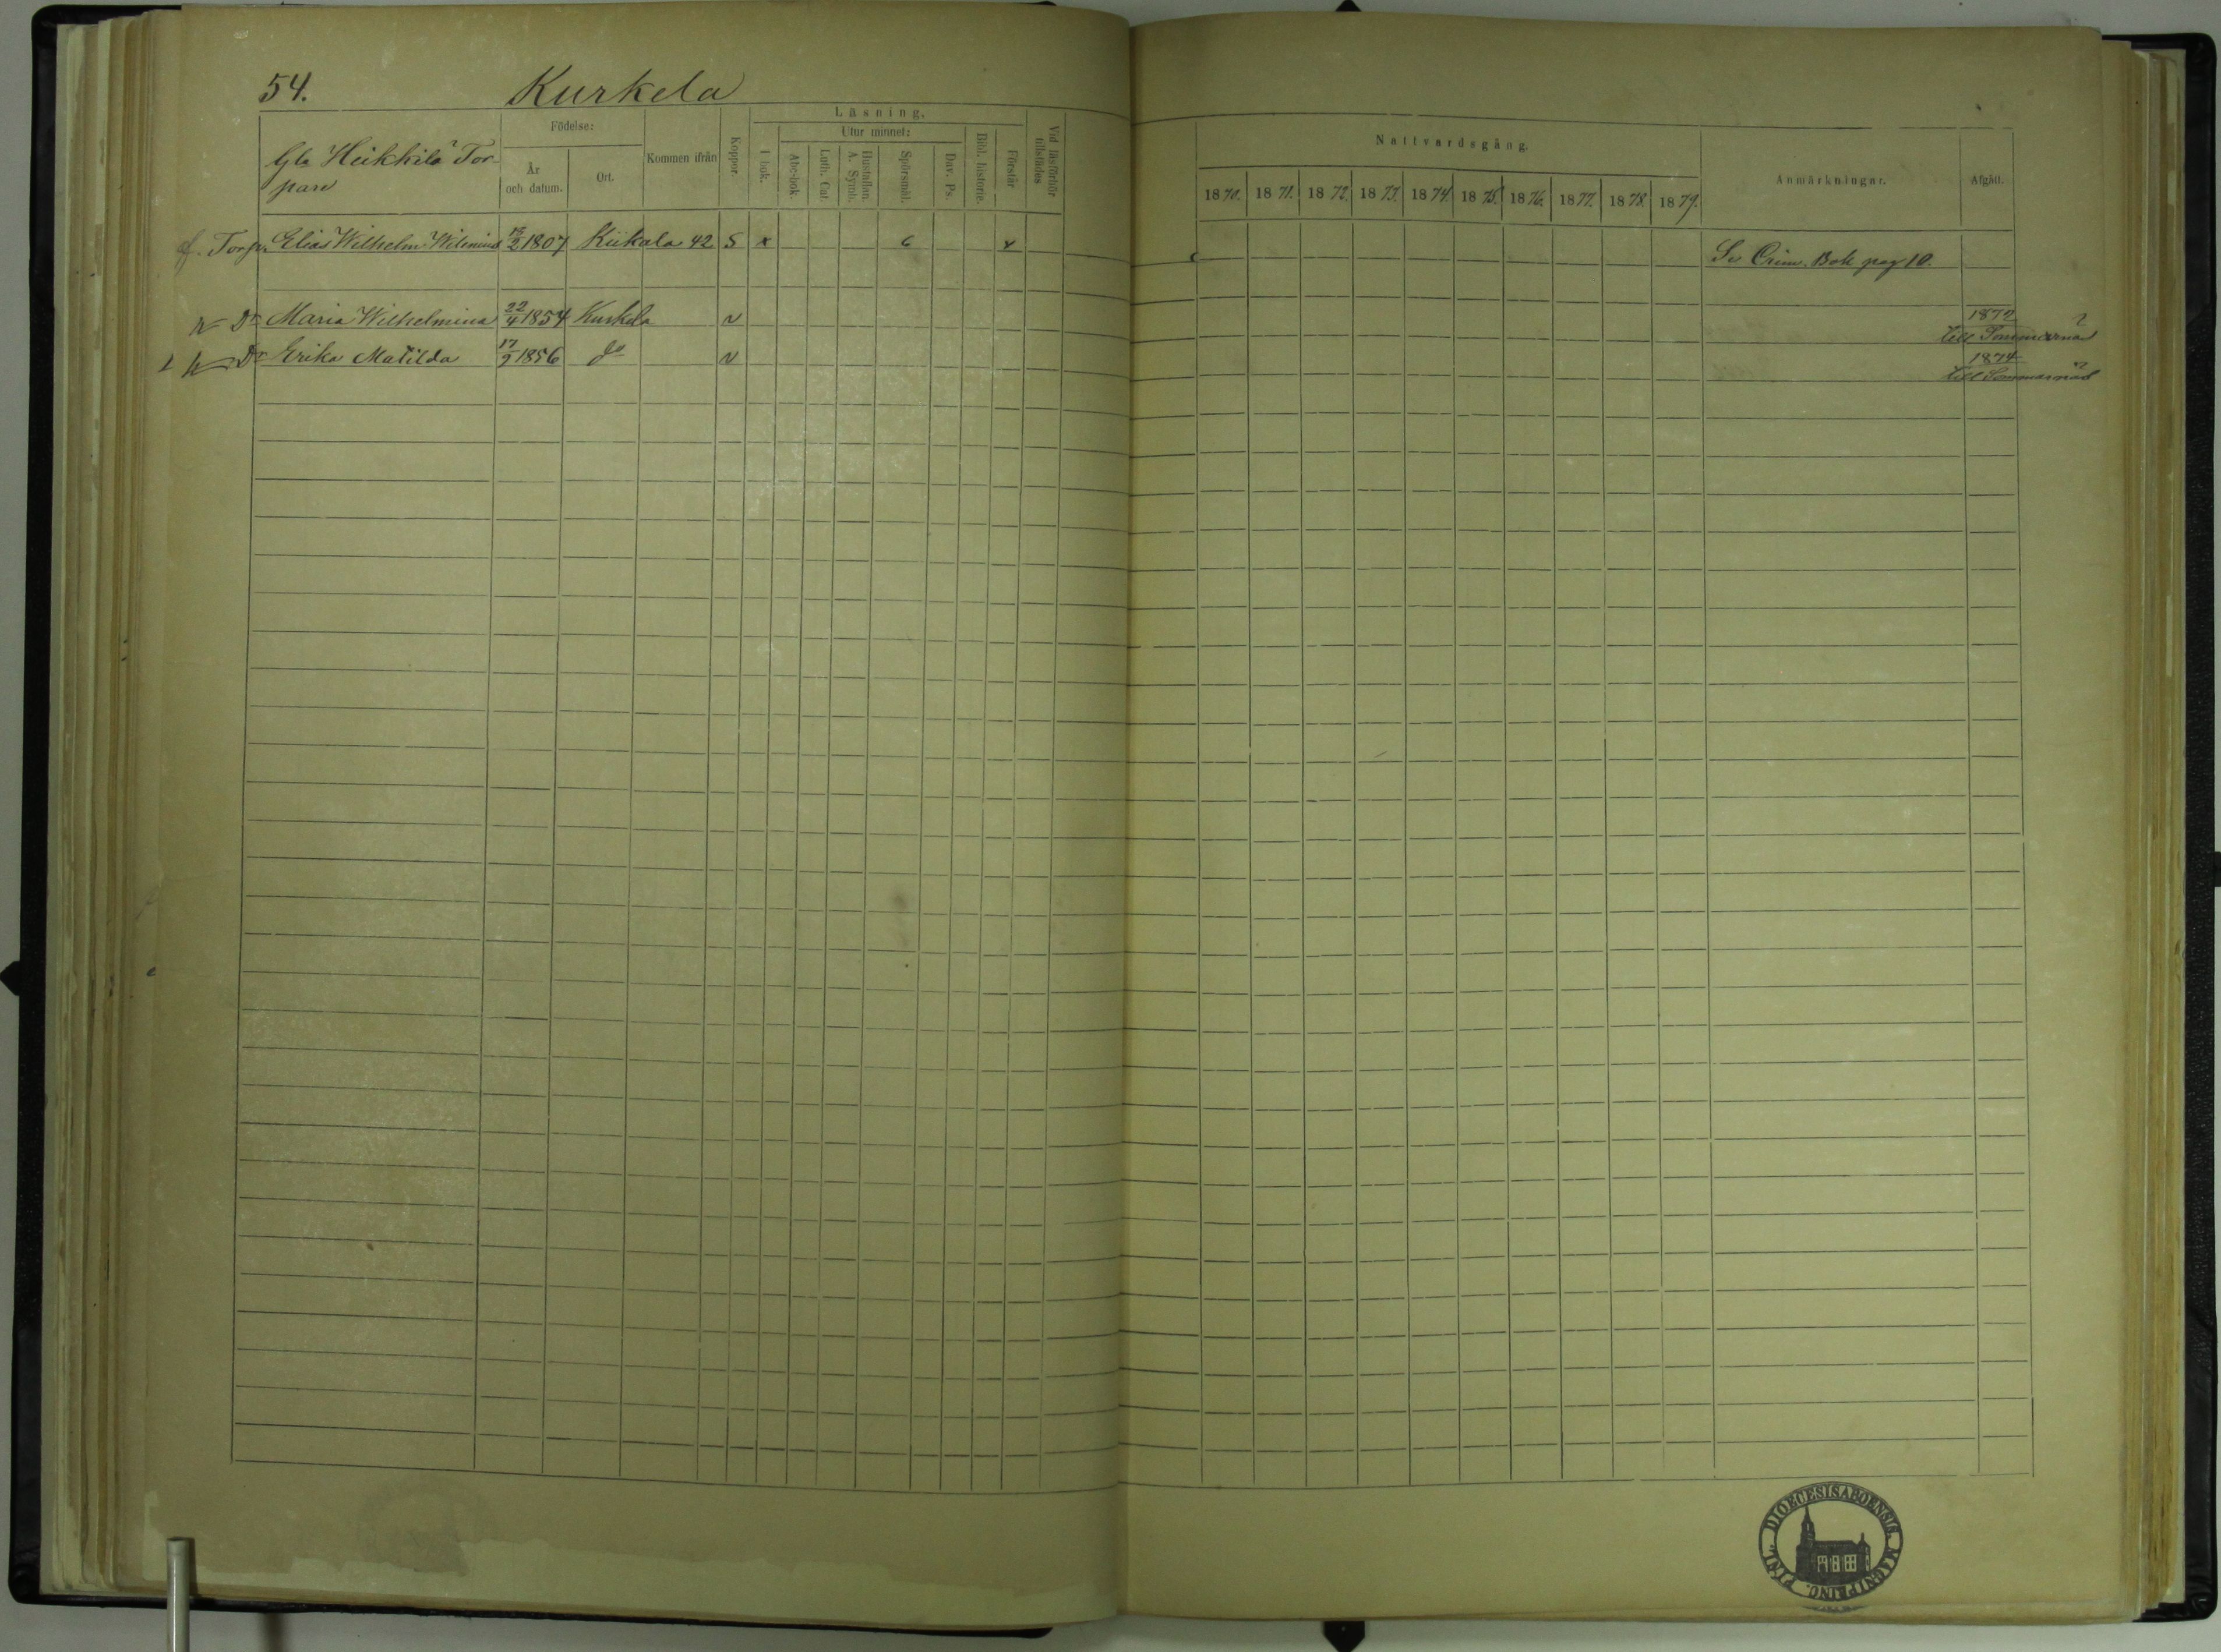 54. Kurkela
Gla Heikkilä Tor-
pare
Födelse:
År
och datum.
Ort.
Kommen ifrån
Koppor.
Läsning.
I bok.
Utur minnet:
Abc-bok.
Luth. Cat.
Hustaflan.
A. Symb.
Spörsmål.
Dav. Ps.
Bibl. historie.
Förstår
Vid läsförhör
tillstädes
Nattvardsgång.
1870. 1871. 1872. 1873. 1874. 1875. 1876. 1877. 1878. 1879.
Anmärkningar.
Afgått.
f. Torp. Elias Wilhelm 15/2 1807 Kiikala 42 S x 6 x Se Crim. Bok pag 10.
Dr Maria Wilhelmina 22/4 1854 Kurkela v 1872
till
Dr Erika Matilda 17/9 1856 do v 1874
till Sommarnäs
DIOECESIS ABOENSIS. MAGNI PRINC. FINL.